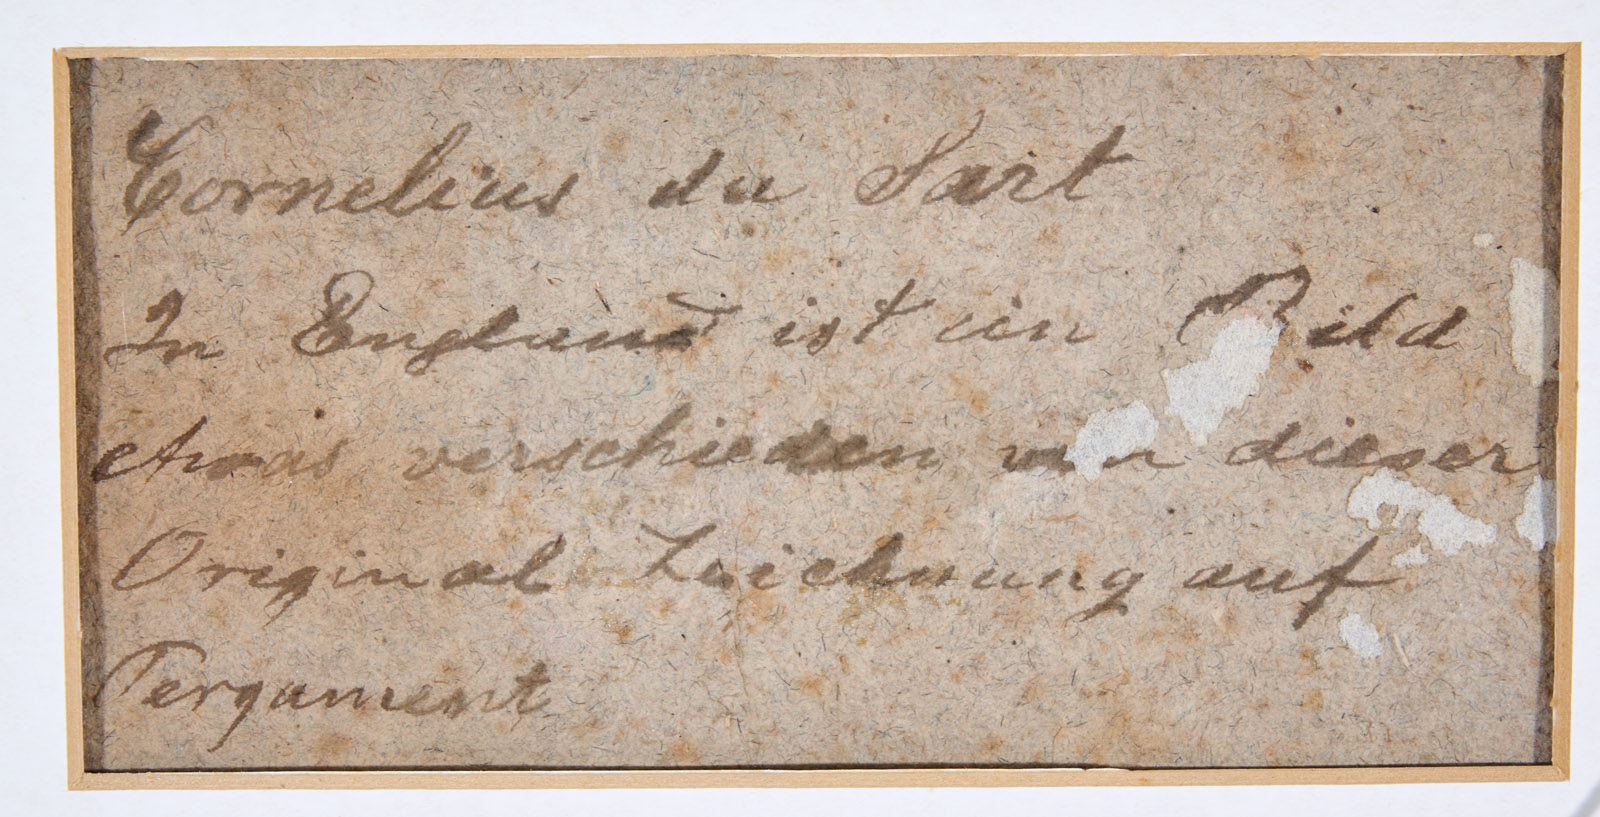 Cornelius du Sart
In England ist ein Bild
etwas verschieden von dieser
Original Zeichnung auf
Pergament